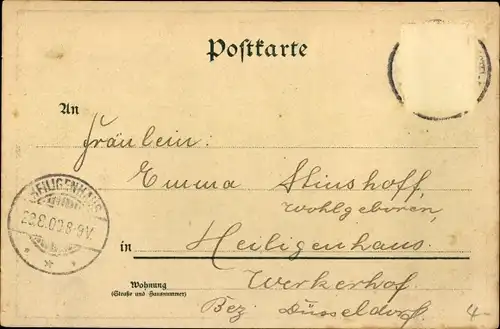 Postkarte
An
Fräulein:
Emma Stinshoff,
wohlgeboren,
in Heiligenhaus.
Werkerhof
Wohnung
(Straße und Hausnummer)
Bez. Düsseldorf
HEILIGENHAUS
23.8.00.8-9V.
4-